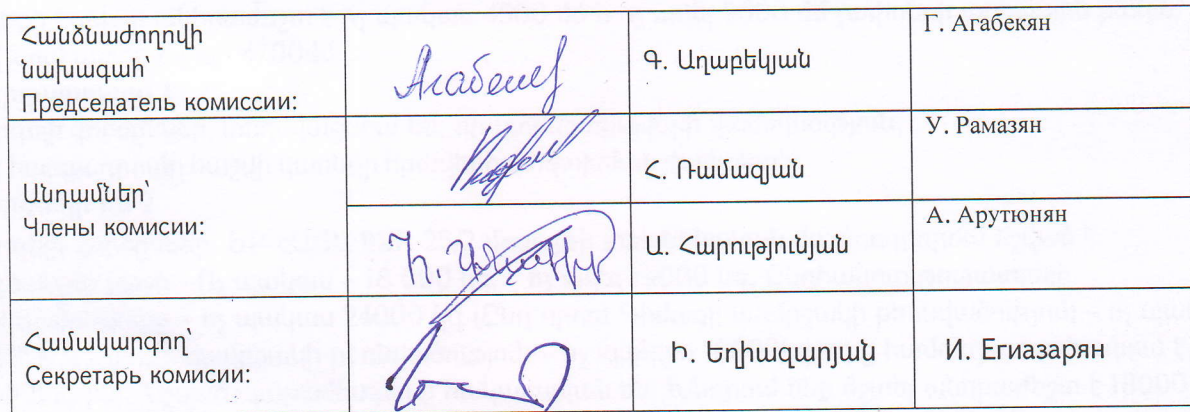 Հանձնաժողովի
նախագահ՝
Председатель комиссии:
Գ. Աղաբեկյան
Г. Агабекян
Անդամներ՝
Члены комисии:
Հ. Ռամազյան
У. Рамазян
Ա. Հարությունյան
А. Арутюнян
Համակարգող՝
Секретарь комисии:
Ի. Եղիազարյան
И. Егиазарян